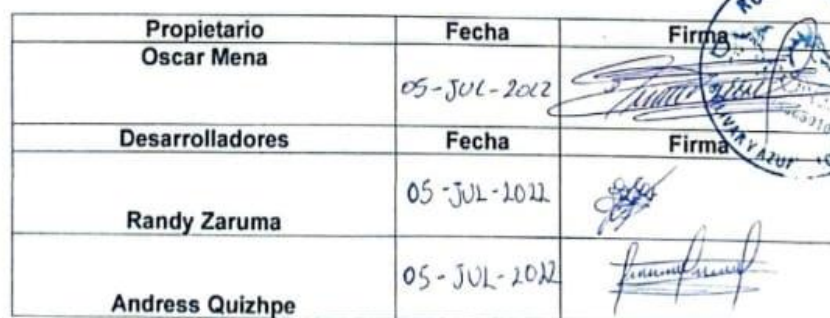 Propietario Fecha Firma
Oscar Mena
05-JUL-2022
Desarrolladores Fecha Firma
05-JUL-2022
Randy Zaruma
05-JUL-2022
Andress Quizhpe